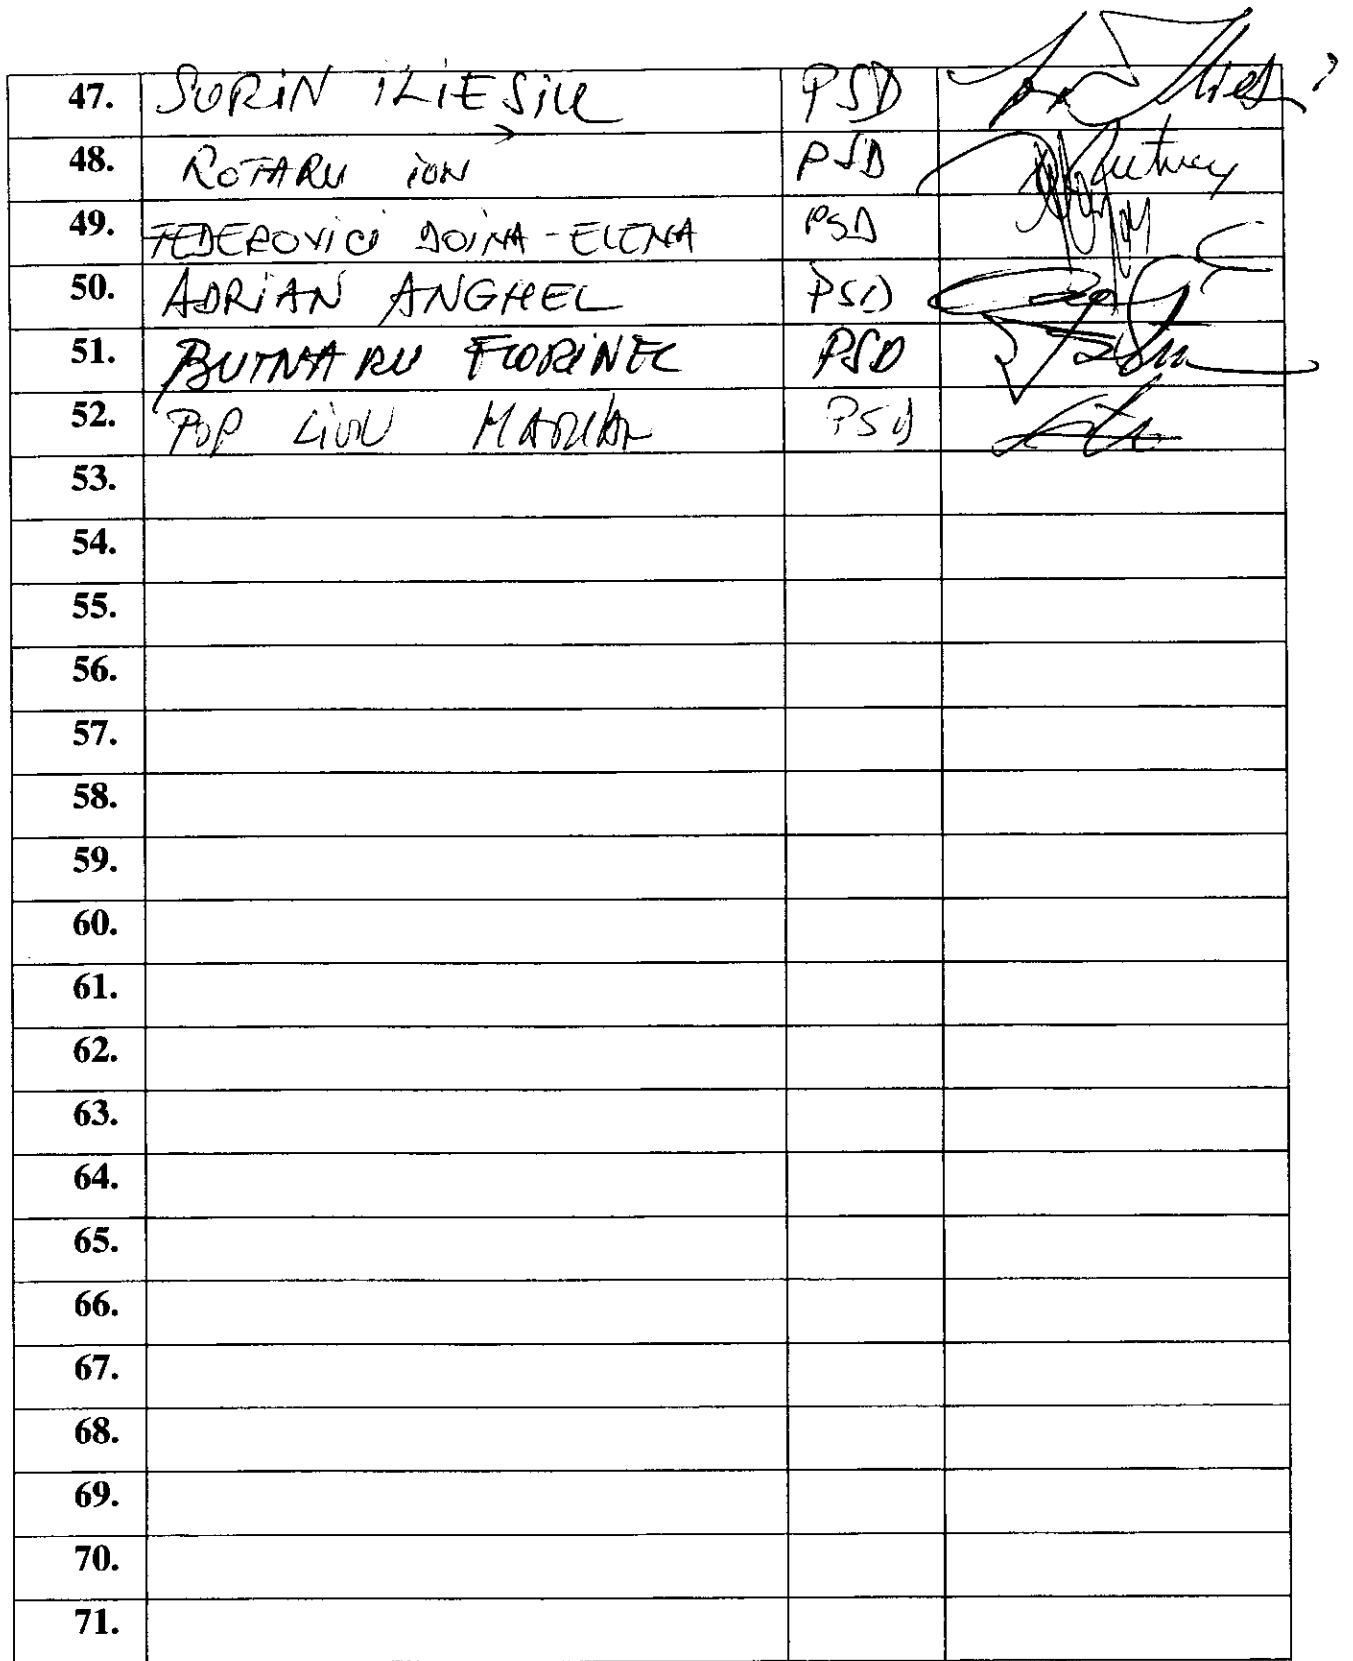 47. SORIN ILIEȘIU PSD
48. ROTARU ION PSD
49. FEDEROVICI DOINA-ELENA PSD
50. ADRIAN ANGHEL PSD
51. BUTNARU FLORINEL PSD
52. POP LIVIU MARIAN PSD
53.
54.
55.
56.
57.
58.
59.
60.
61.
62.
63.
64.
65.
66.
67.
68.
69.
70.
71.